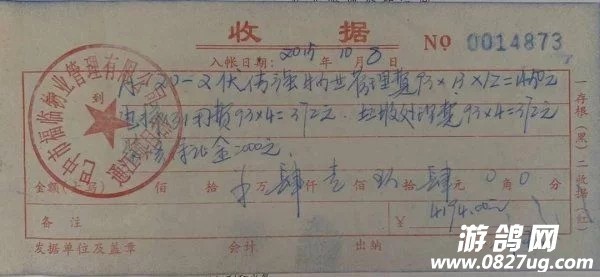 收 据
入帐日期：2015年10月8日
NO 0014873
巴中市福临物业管理有限公司
物业管理费93×1.3×12=1450元
电梯公用费93×4=372元．垃圾处理费93×4=372元
保证金2000元
金额(大写) 佰 拾 万肆仟壹佰玖拾肆元0角0分
备 注
¥ 4194.00元
发据单位及盖章 会计 出纳
一存根（黑）二收据（红）
游鸽网
www.0827ug.com